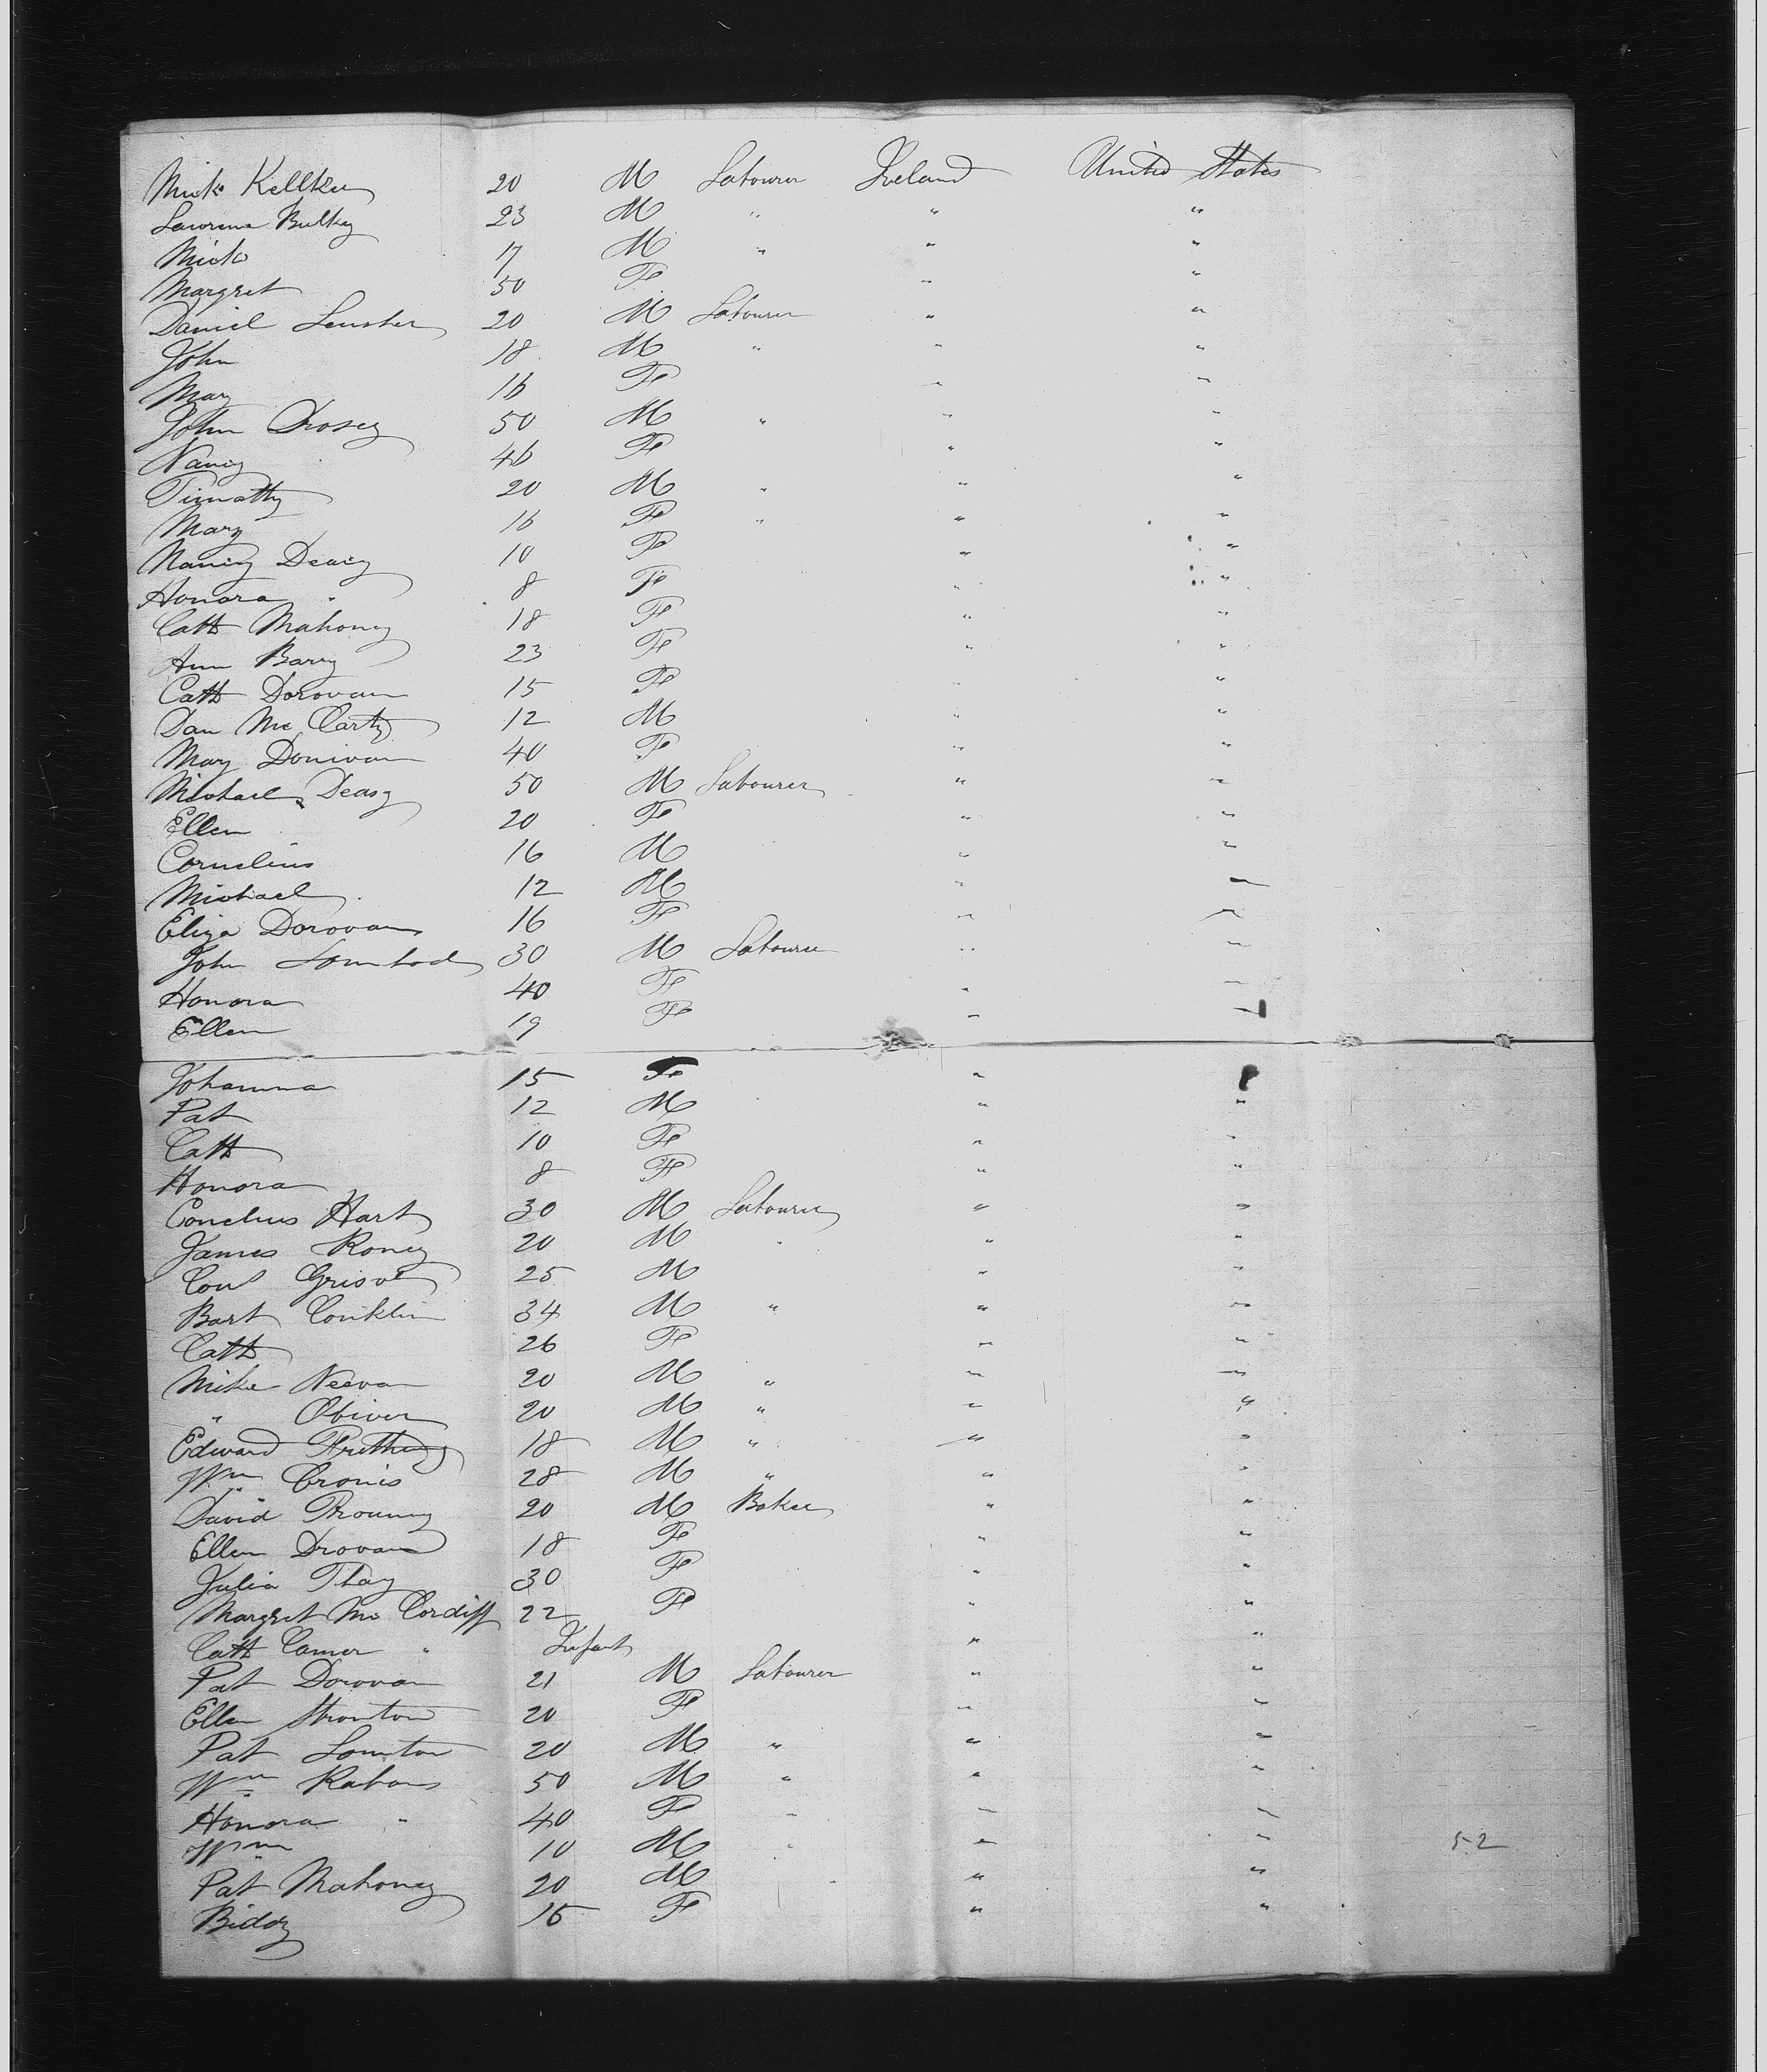 Mick Kelliher 20 M Labourer Ireland United States
Lawrence Bulkey 23 M " " "
Mick 17 M " " "
Margret 50 F " "
Daniel Lenster 20 M Labourer " "
John 18 M " " "
Mary 16 F " "
John Drosey 50 M " " "
Nancy 46 F " "
Timothy 20 M " " "
Mary 16 F " " "
Nancy Deasy 10 F " "
Honora " 8 F " "
Cath Mahoney 18 F " "
Ann Barry 23 F " "
Cath Dorovan 15 F " "
Dan Mc Carty 12 M " "
Mary Donivan 40 F " "
Michael Deasy 50 M Labourer " "
Ellen 20 F " "
Cornelius 16 M " "
Michael 12 M " "
Eliza Dorovan 16 F " "
John 30 M Labourer " "
Honora 40 F " "
Ellen 19 F " "
Johanna 15 F "
Pat 12 M " "
Cath 10 F " "
Honora 8 F " "
Conelius Hart 30 M Labourer " "
James Roney 20 M " " "
Conl 25 M " "
Bart Conklin 34 M " " "
Cath 26 F " "
Mike Neevan 20 M " " "
" Obiver 20 M " " "
Edward 18 M " " "
Wm Cronis 28 M " " "
David 20 M Baker " "
Ellen Drovan 18 F " "
Julia Thay 30 F " "
Margret Mc Cordiff 22 F " "
Cath Comer " Infant " "
Pat Dorovan 21 M Labourer " "
Ellen Stronton 20 F " "
Pat Lomton 20 M " " "
Wm Rabons 50 M " " "
Honora " 40 F " " "
Wm " 10 M " " " 52
Pat Mahoney 20 M " "
Biddy 15 F " "